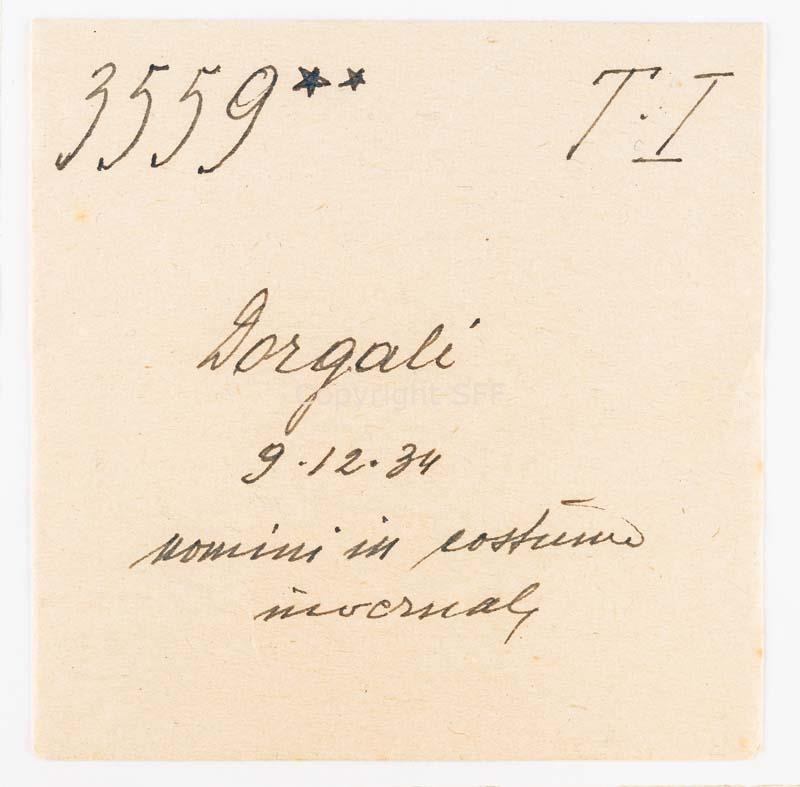 3559** T.I
Dorgali
Copyright SFF
9.12.34
uomini in costume
invernale